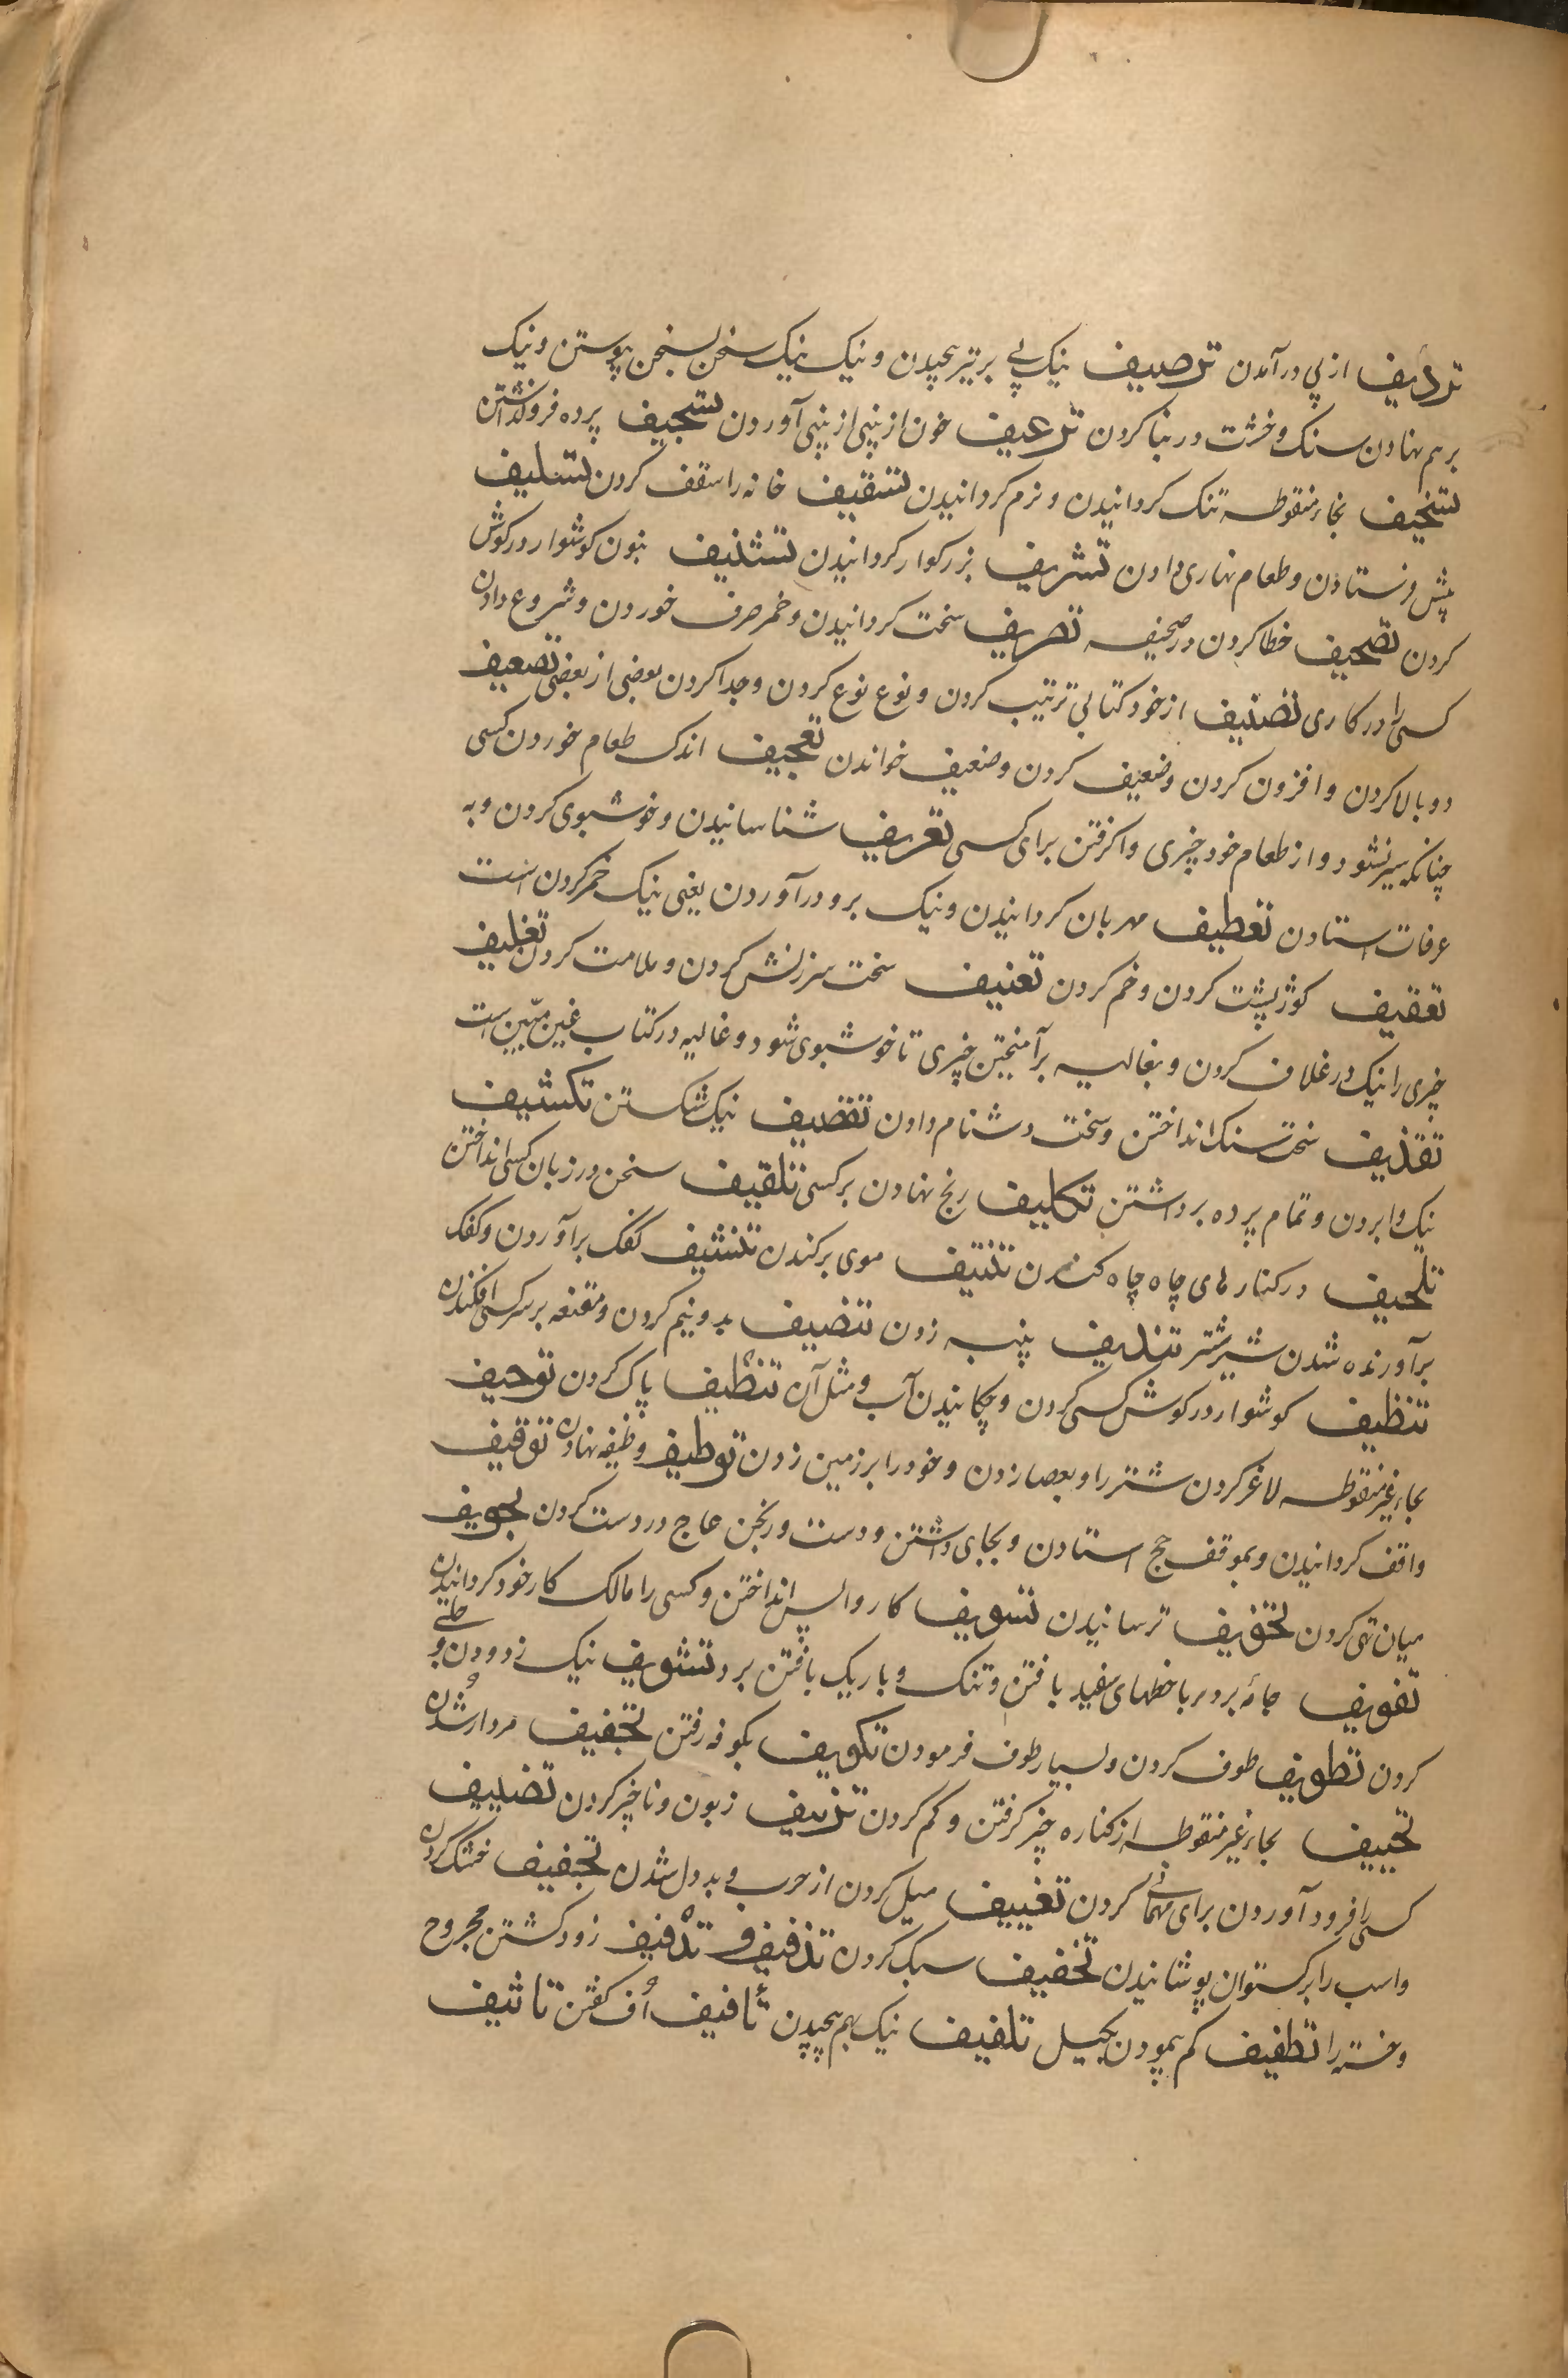 تردیف از پی درآمدن ترصیف نیک پی بر تیر پیچیدن و نیک نیک سخن بسخن پیوستن و نیک
برهم نهادن سنک و خشت در بنا کردن ترعیف خون از بینی از بینی آوردن تسجیف پرده فروکذاشتن
تسخیف بخاء منقوطه تنک کردانیدن و نرم کردانیدن تسقیف خانه را سقف کردن تسلیف
پیش فرستادن و طعام نهاری دادن تشریف بزرکوار کردانیدن تشنیف بنون کوشوار در کوش
کردن تصحیف خطا کردن در صحیفه تصریف سخت کردانیدن و خمر صرف خوردن و شروع دادن
کسی را در کاری تصنیف از خود کتابی ترتیب کردن و نوع نوع کردن و جدا کردن بعضی از بعضی تضعیف
دوبالا کردن و افزون کردن و ضعیف کردن و ضعیف خواندن تعجیف اندک طعام خوردن کسی
چنانکه سیر نشود و از طعام خود چیزی واکرفتن برای کسی تعریف شناسانیدن و خوشبوی کردن و به
عرفات استادن تعطیف مهربان کردانیدن و نیک برو درآوردن یعنی نیک خم کردن است
تعقیف کوژپشت کردن و خم کردن تعنیف سخت سرزنش کردن و ملامت کردن تغلیف
چیزی را نیک در غلاف کردن و بغالیه برآمیختن چیزی تا خوشبوی شود و غالیه در کتاب غین مبین است
تقذیف سخت سنک انداختن و سخت دشنام دادن تقصیف نیک شکستن تکشیف
نیک وابردن و تمام پرده برداشتن تکلیف رنج نهادن بر کسی تلقیف سخن در زبان کسی انداختن
تلجیف در کنارهای چاه چاه کندن تنتیف موی برکندن تنشیف کفک برآوردن و کفک
برآورنده شدن شیر شتر تندیف پنبه زدن تنصیف بدونیم کردن و مقنعه بر سر کسی افکندن
تنظیف کوشوار در کوش کسی کردن و چکانیدن آب و مثل آن تنظیف پاک کردن توحیف
بحاء غیر منقوطه لاغر کردن شتر را و بعصا زدن و خود را بر زمین زدن توظیف وظیفه نهادن توقیف
واقف کردانیدن و بموقف حج استادن و بجای داشتن و دست ورنجن عاج در دست کردن تجویف
میان تهی کردن تخویف ترسانیدن تسویف کار واپس انداختن و کسی را مالک کار خود کردانیدن
تفویف جامهٔ برد را با خطهای سفید بافتن و تنک و باریک بافتن برد تشویف نیک زدودن و جلی
کردن تطویف طوف کردن و بسیار طوف فرمودن تکویف بکوفه رفتن تجییف مردار شدن
تحییف بحاء غیر منقوطه از کناره چیز کرفتن و کم کردن تزییف زبون و ناچیز کردن تضییف
کسی را فرود آوردن برای مهمانی کردن تغییف میل کردن از حرب و بددل شدن تجفیف خشک کردن
و اسب را برکستوان پوشانیدن تخفیف سبک کردن تذفیف و تدفیف زود کشتن مجروح
و خسته را تطفیف کم پیمودن بکیل تلفیف نیک بهم پیچیدن تأفیف اُف کفتن تاثیف